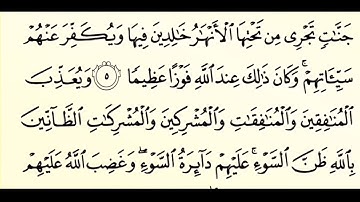 جَنَّٰتٍ تَجْرِى مِن تَحْتِهَا ٱلْأَنْهَٰرُ خَٰلِدِينَ فِيهَا وَيُكَفِّرَ عَنْهُمْ
سَيِّـَٔاتِهِمْ ۚ وَكَانَ ذَٰلِكَ عِندَ ٱللَّهِ فَوْزًا عَظِيمًا ٥ وَيُعَذِّبَ
ٱلْمُنَٰفِقِينَ وَٱلْمُنَٰفِقَٰتِ وَٱلْمُشْرِكِينَ وَٱلْمُشْرِكَٰتِ ٱلظَّآنِّينَ
بِٱللَّهِ ظَنَّ ٱلسَّوْءِ ۚ عَلَيْهِمْ دَآئِرَةُ ٱلسَّوْءِ ۖ وَغَضِبَ ٱللَّهُ عَلَيْهِمْ